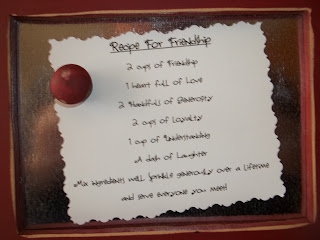 Recipe For Friendship
2 cups of Friendship
1 heart full of Love
2 Handfulls of Generosity
2 cups of Loyalty
1 cup of Understanding
A dash of Laughter
Mix ingredients well. Sprinkle generously over a lifetime
and serve everyone you meet!